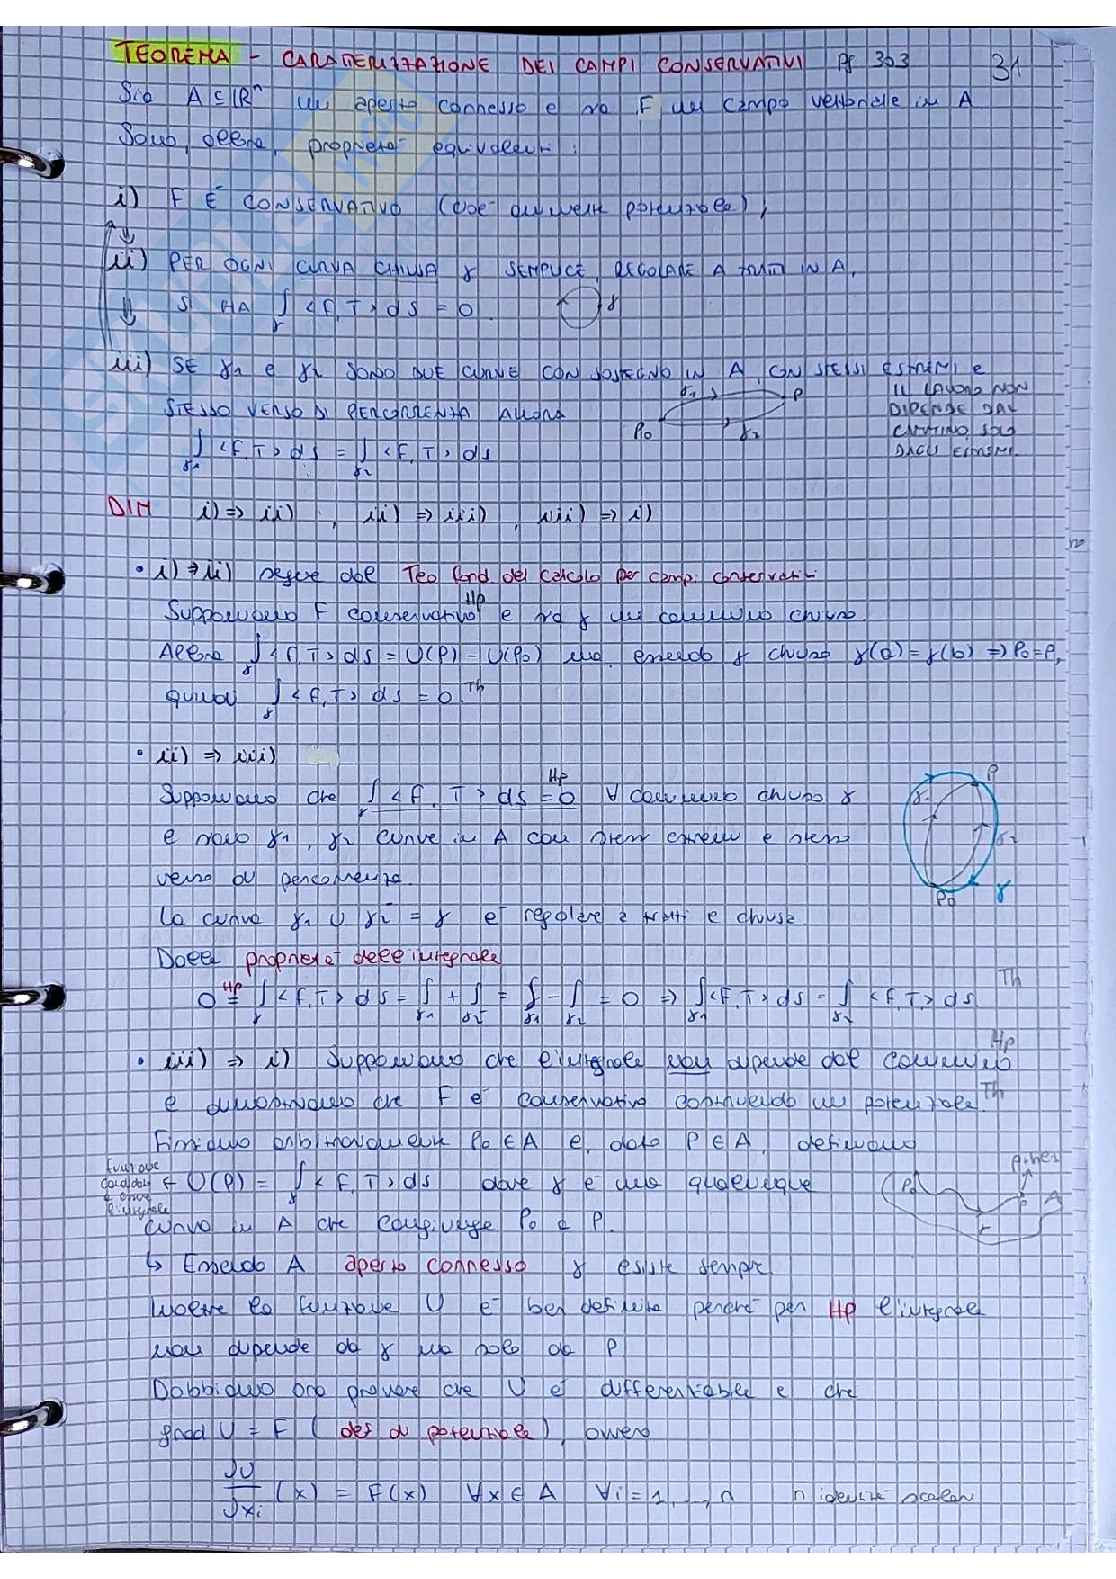 TEOREMA - CARATTERIZZAZIONE DEI CAMPI CONSERVATIVI pg 303 31
Sia A ⊆ ℝⁿ un aperto connesso e sia F un campo vettoriale in A
Sono, allora, proprietà equivalenti:
i) F È CONSERVATIVO (cioè ammette potenziale),
ii) PER OGNI CURVA CHIUSA γ SEMPLICE, REGOLARE A TRATTI IN A,
SI HA ∫γ <F,T> ds = 0. γ
iii) SE γ1 e γ2 SONO DUE CURVE CON SOSTEGNO IN A, CON STESSI ESTREMI e
STESSO VERSO DI PERCORRENZA ALLORA
∫γ1 <F,T> ds = ∫γ2 <F,T> ds
P0 γ1 γ2 P
IL LAVORO NON
DIPENDE DAL
CAMMINO, SOLO
DAGLI ESTREMI.
DIM i) ⇒ ii) , ii) ⇒ iii) , iii) ⇒ i)
• i) ⇒ ii) segue dal Teo fond del calcolo per campi conservativi
Supponiamo F conservativo Hp e sia γ un cammino chiuso.
Allora ∫γ <F,T> ds = U(P) - U(P0) ma essendo γ chiuso γ(a) = γ(b) ⇒ P0 = P,
quindi ∫γ <F,T> ds = 0. Th
• ii) ⇒ iii)
Supponiamo che ∫γ <F,T> ds = 0 Hp ∀ cammino chiuso γ
e siano γ1, γ2 curve in A con stessi estremi e stesso
verso di percorrenza.
P γ1 γ2 P0 γ
La curva γ1 ∪ γ2⁻ = γ è regolare a tratti e chiusa
Dalla proprietà dell'integrale
0 =Hp ∫γ <F,T> ds = ∫γ1 + ∫γ2⁻ = ∫γ1 - ∫γ2 = 0 ⇒ ∫γ1 <F,T> ds = ∫γ2 <F,T> ds Th
• iii) ⇒ i) Supponiamo che l'integrale non dipende dal cammino Hp
e dimostriamo che F è conservativo costruendo un potenziale. Th
Fissiamo arbitrariamente P0 ∈ A e, dato P ∈ A, definiamo
U(P) = ∫γ <F,T> ds dove γ è una qualunque
curva in A che congiunge P0 a P.
P0 γ P A
↳ Essendo A aperto connesso γ esiste sempre
Inoltre la funzione U è ben definita perché per Hp l'integrale
non dipende da γ ma solo da P
Dobbiamo ora provare che U è differenziabile e che
grad U = F (def di potenziale), ovvero
∂U/∂xi (x) = F(x) ∀x ∈ A ∀i = 1, .., n n identità scalari